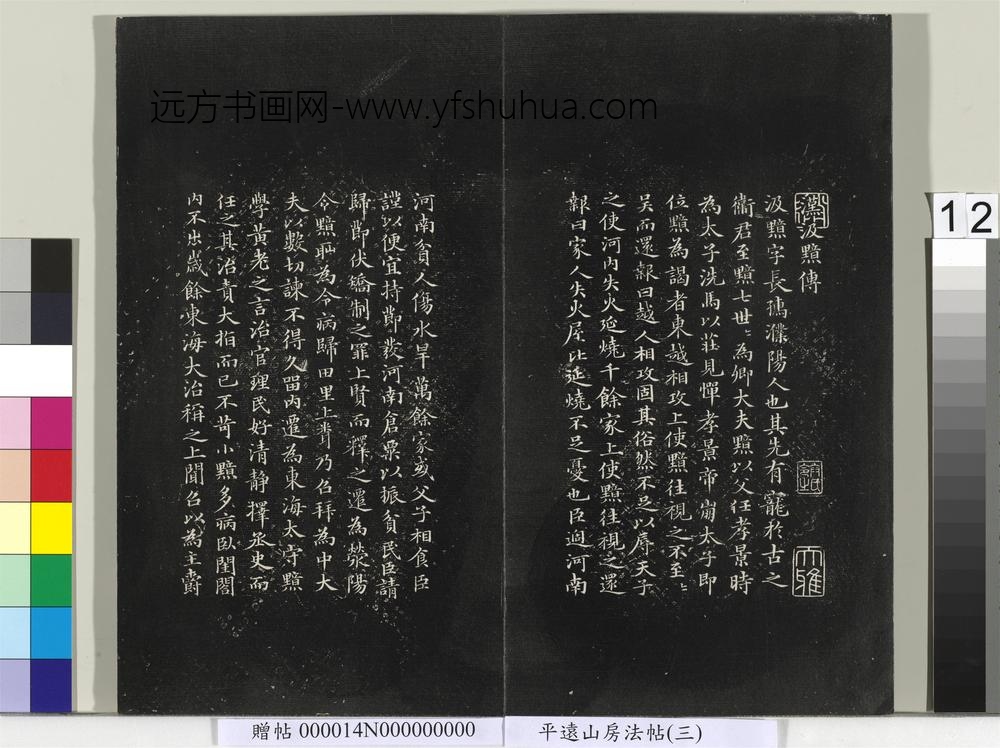 远方书画网-www.yfshuhua.com
汲黯傳
汲黯字長孺濮陽人也其先有寵於古之
衛君至黯七世〻為卿大夫黯以父任孝景時
為太子洗馬以莊見憚孝景帝崩太子即
位黯為謁者東越相攻上使黯往視之不至〻
吳而還報曰越人相攻固其俗然不足以辱天子
之使河内失火延燒千餘家上使黯往視之還
報曰家人失火屋比延燒不足憂也臣過河南
河南貧人傷水旱萬餘家或父子相食臣
謹以便宜持節發河南倉粟以振貧民臣請
歸節伏矯制之罪上賢而釋之遷為滎陽
令黯恥為令病歸田里上聞乃召拜為中大
夫以數切諫不得久留内遷為東海太守黯
學黃老之言治官理民好清静擇丞史而
任之其治責大指而已不苛小黯多病臥閨閤
内不出歲餘東海大治稱之上聞召以為主爵
大雅
12
贈帖 000014N000000000
平遠山房法帖(三)